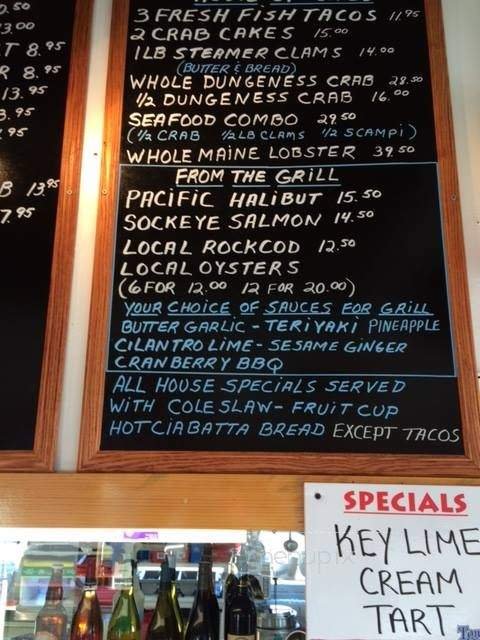 .50
3.00
T 8.95
R 8.95
13.95
.95
95
B 13.95
7.95
3 FRESH FISH TACOS 11.95
2 CRAB CAKES 15.00
1LB STEAMER CLAMS 14.00
(BUTTER & BREAD)
WHOLE DUNGENESS CRAB 28.50
1/2 DUNGENESS CRAB 16.00
SEAFOOD COMBO 29.50
(1/2 CRAB 1/2LB CLAMS 1/2 SCAMPI)
WHOLE MAINE LOBSTER 39.50
FROM THE GRILL
PACIFIC HALIBUT 15.50
SOCKEYE SALMON 14.50
LOCAL ROCKCOD 12.50
LOCAL OYSTERS
(6 FOR 12.00 12 FOR 20.00)
YOUR CHOICE OF SAUCES FOR GRILL
BUTTER GARLIC - TERIYAKI PINEAPPLE
CILANTRO LIME - SESAME GINGER
CRANBERRY BBQ
ALL HOUSE SPECIALS SERVED
WITH COLE SLAW - FRUIT CUP
HOT CIABATTA BREAD EXCEPT TACOS
SPECIALS
KEY LIME
CREAM
TART